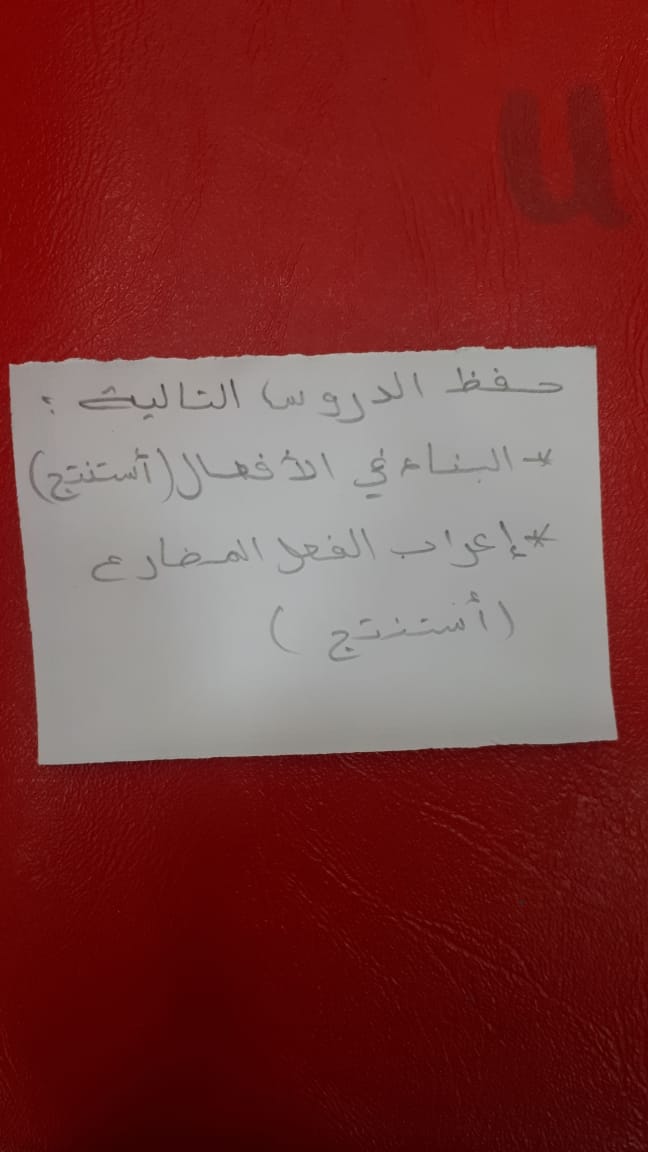 حفظ الدروس التالية :
* البناء في الأفعال (أستنتج)
* إعراب الفعل المضارع
(أستنتج )